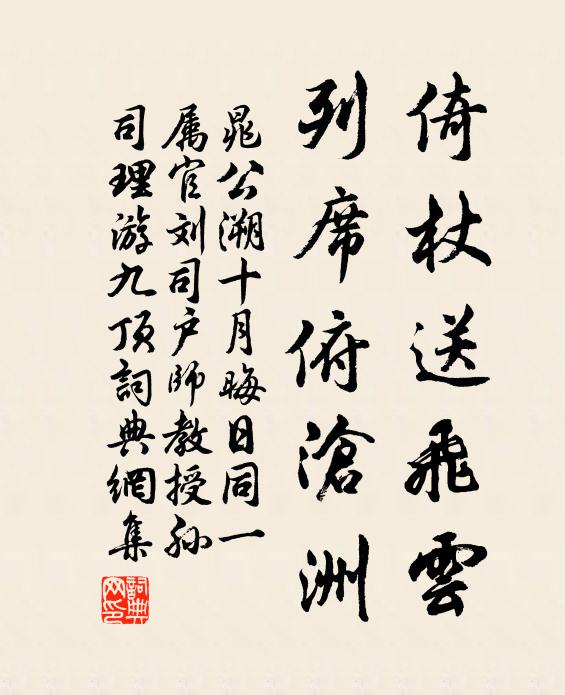 倚杖送飛雲
列席俯滄洲
晁公溯十月晦日同一
属官刘司户師教授孙
司理游九顶詞典網集
詞典网印